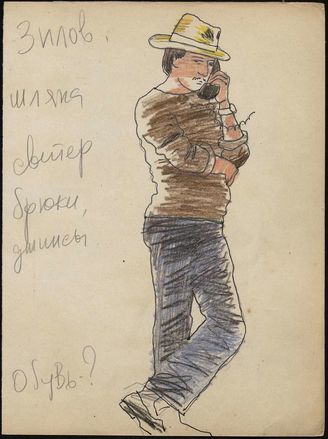 Зилов.
шляпа
свитер
брюки,
джинсы
обувь-?